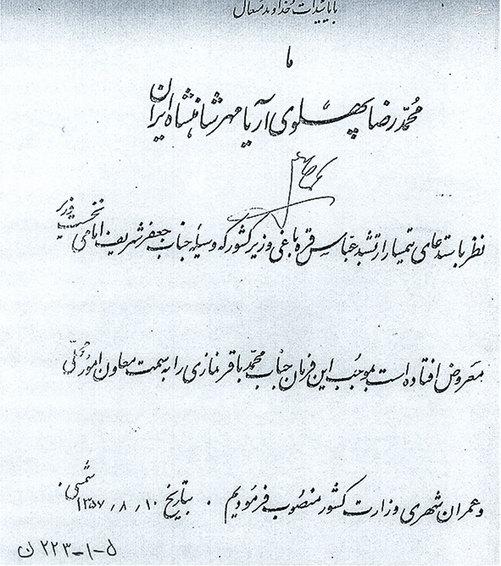 با تأییدات خداوند متعال
ما
محمد رضا پهلوی آریامهر شاهنشاه ایران
نظر باستدعای تیمسار ارتشبد عباس قره باغی وزیر کشور که وسیله جناب جعفر شریف امامی نخست وزیر
معروض افتاده است بموجب این فرمان جناب محمد باقر نمازی را به سمت معاون امور محلی
و عمران شهری وزارت کشور منصوب فرمودیم . بتاریخ ۱۰ / ۸ / ۱۳۵۷ شمسی .
۲۲۳-۱-۵ ن